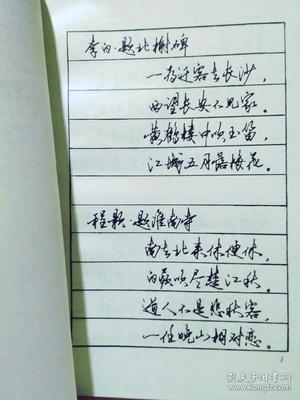 李白·题北榭碑
一为迁客去长沙，
西望长安不见家。
黄鹤楼中吹玉笛，
江城五月落梅花。
程颢·题淮南寺
南去北来休便休，
白蘋吹尽楚江秋。
道人不是悲秋客，
一任晚山相对愁。
1
孔夫子旧书网
www.kongfz.com